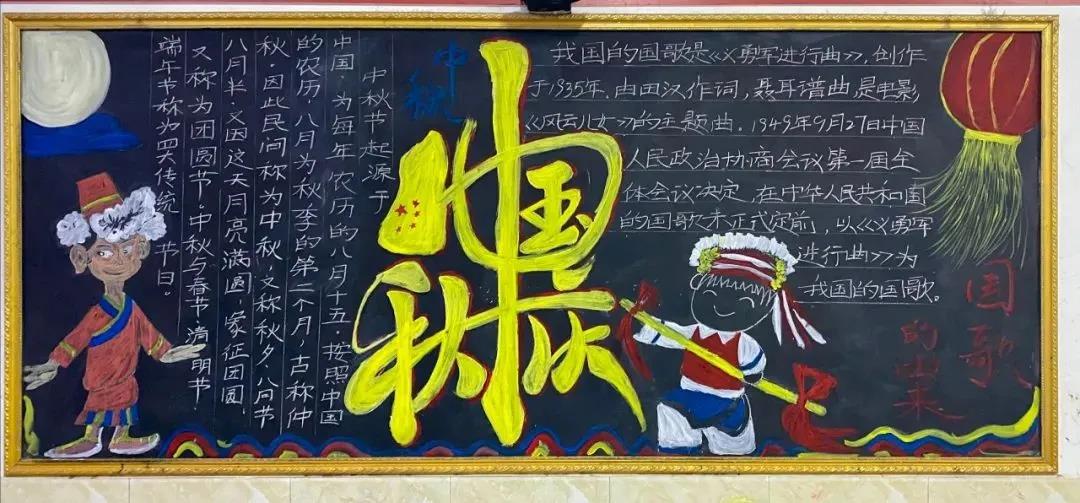 中秋节起源于
中国,为每年农历的八月十五,按照中国
的农历,八月为秋季的第二个月,古称仲
秋,因此民间称为中秋,又称秋夕、八月节
八月半,又因这天月亮满圆,象征团圆,
又称为团圆节。中秋与春节、清明节、
端午节称为四大传统节日。
中秋
中秋国庆
我国的国歌是《义勇军进行曲》,创作
于1935年,由田汉作词,聂耳谱曲,是电影
《风云儿女》的主题曲。1949年9月27日中国
人民政治协商会议第一届全
体会议决定,在中华人民共和国
的国歌未正式定前,以《义勇军
进行曲》为
我国的国歌。
国歌
的由来